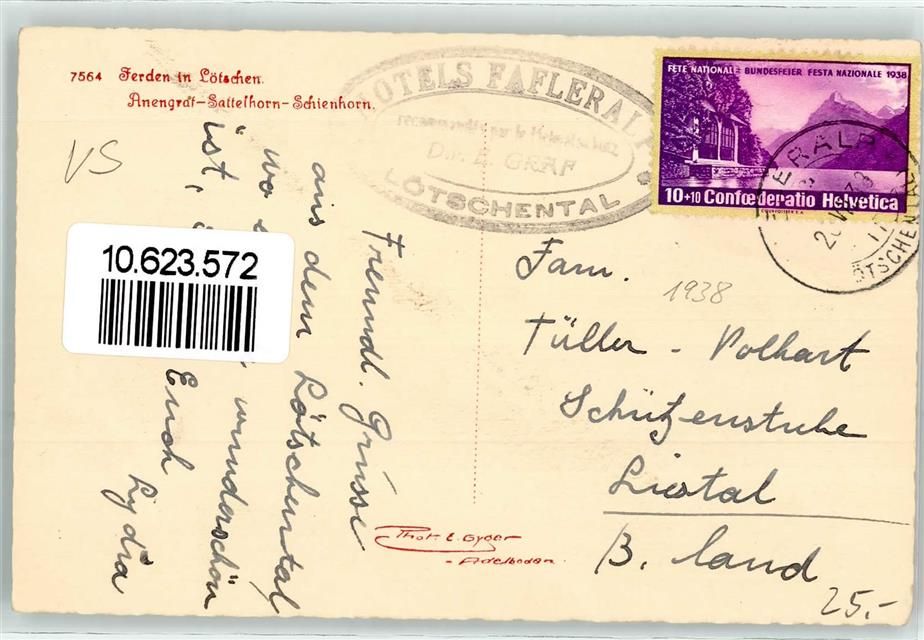 7564 Ferden in Lötschen.
Anengrat-Sattelhorn-Schienhorn.
VS
HOTELS FAFLERALP
recommandés par le Heimatschutz
Dir. E. GRAF
LÖTSCHENTAL
FETE NATIONALE BUNDESFEIER FESTA NAZIONALE 1938
10+10 Confœderatio Helvetica
10.623.572
Freundl. Grüsse
aus dem Lötschental
wo es wunderschön
ist,
Euch Lydia
Fam.
1938
Tüller - Volhart
Schützenstube
Liestal
B. land
Phot. E. Gyger
- Adelboden.
25.-